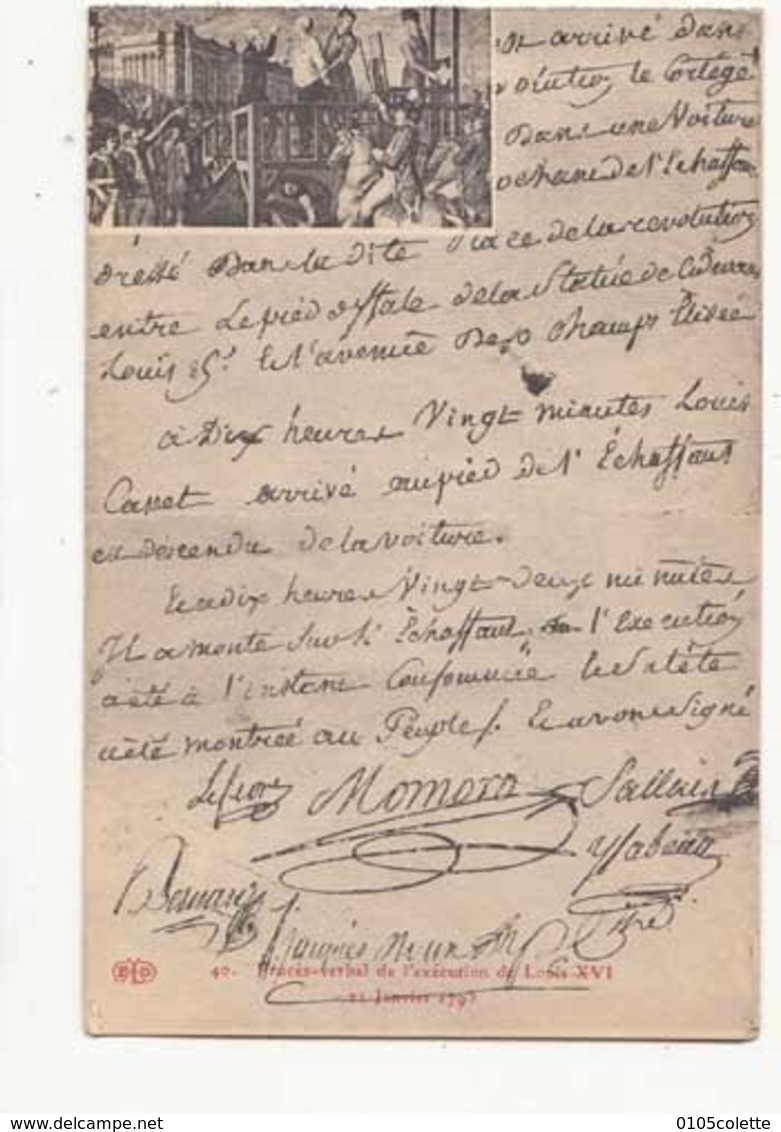 est arrivé dans
volution le Cortége
Dans une Voiture
ochane de l'Echaffau
dréssé Dans la dite Place de la revolution
entre Le pied d'Estale de la Statüe de
Louis 15.e Et l'avenuë Des Champs Elisée
à Dix heures Vingt minutes Louis
Capet arrivé au pied de l'Echaffaut
est descendu de la voiture.
Et a dix heures Vingt-deux minutes
Il a monté sur l'Echaffaut, l'Execution
a été à l'instant Consommée Et Sa tête
a été montreé au Peuple. Et avons signé
Lefevre Momoro Sallais
Isabeau
Bernard
Jacques
40. Procès-verbal de l'exécution de Louis XVI
21 Janvier 1793
ELD
0105colette